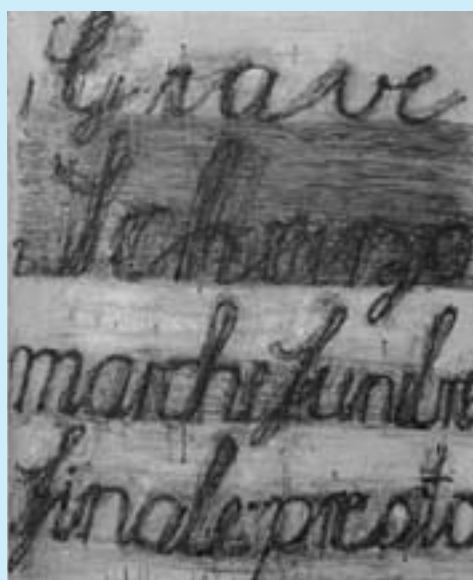 1 Grave
2 Scherzo
marche funèbre
finale presto